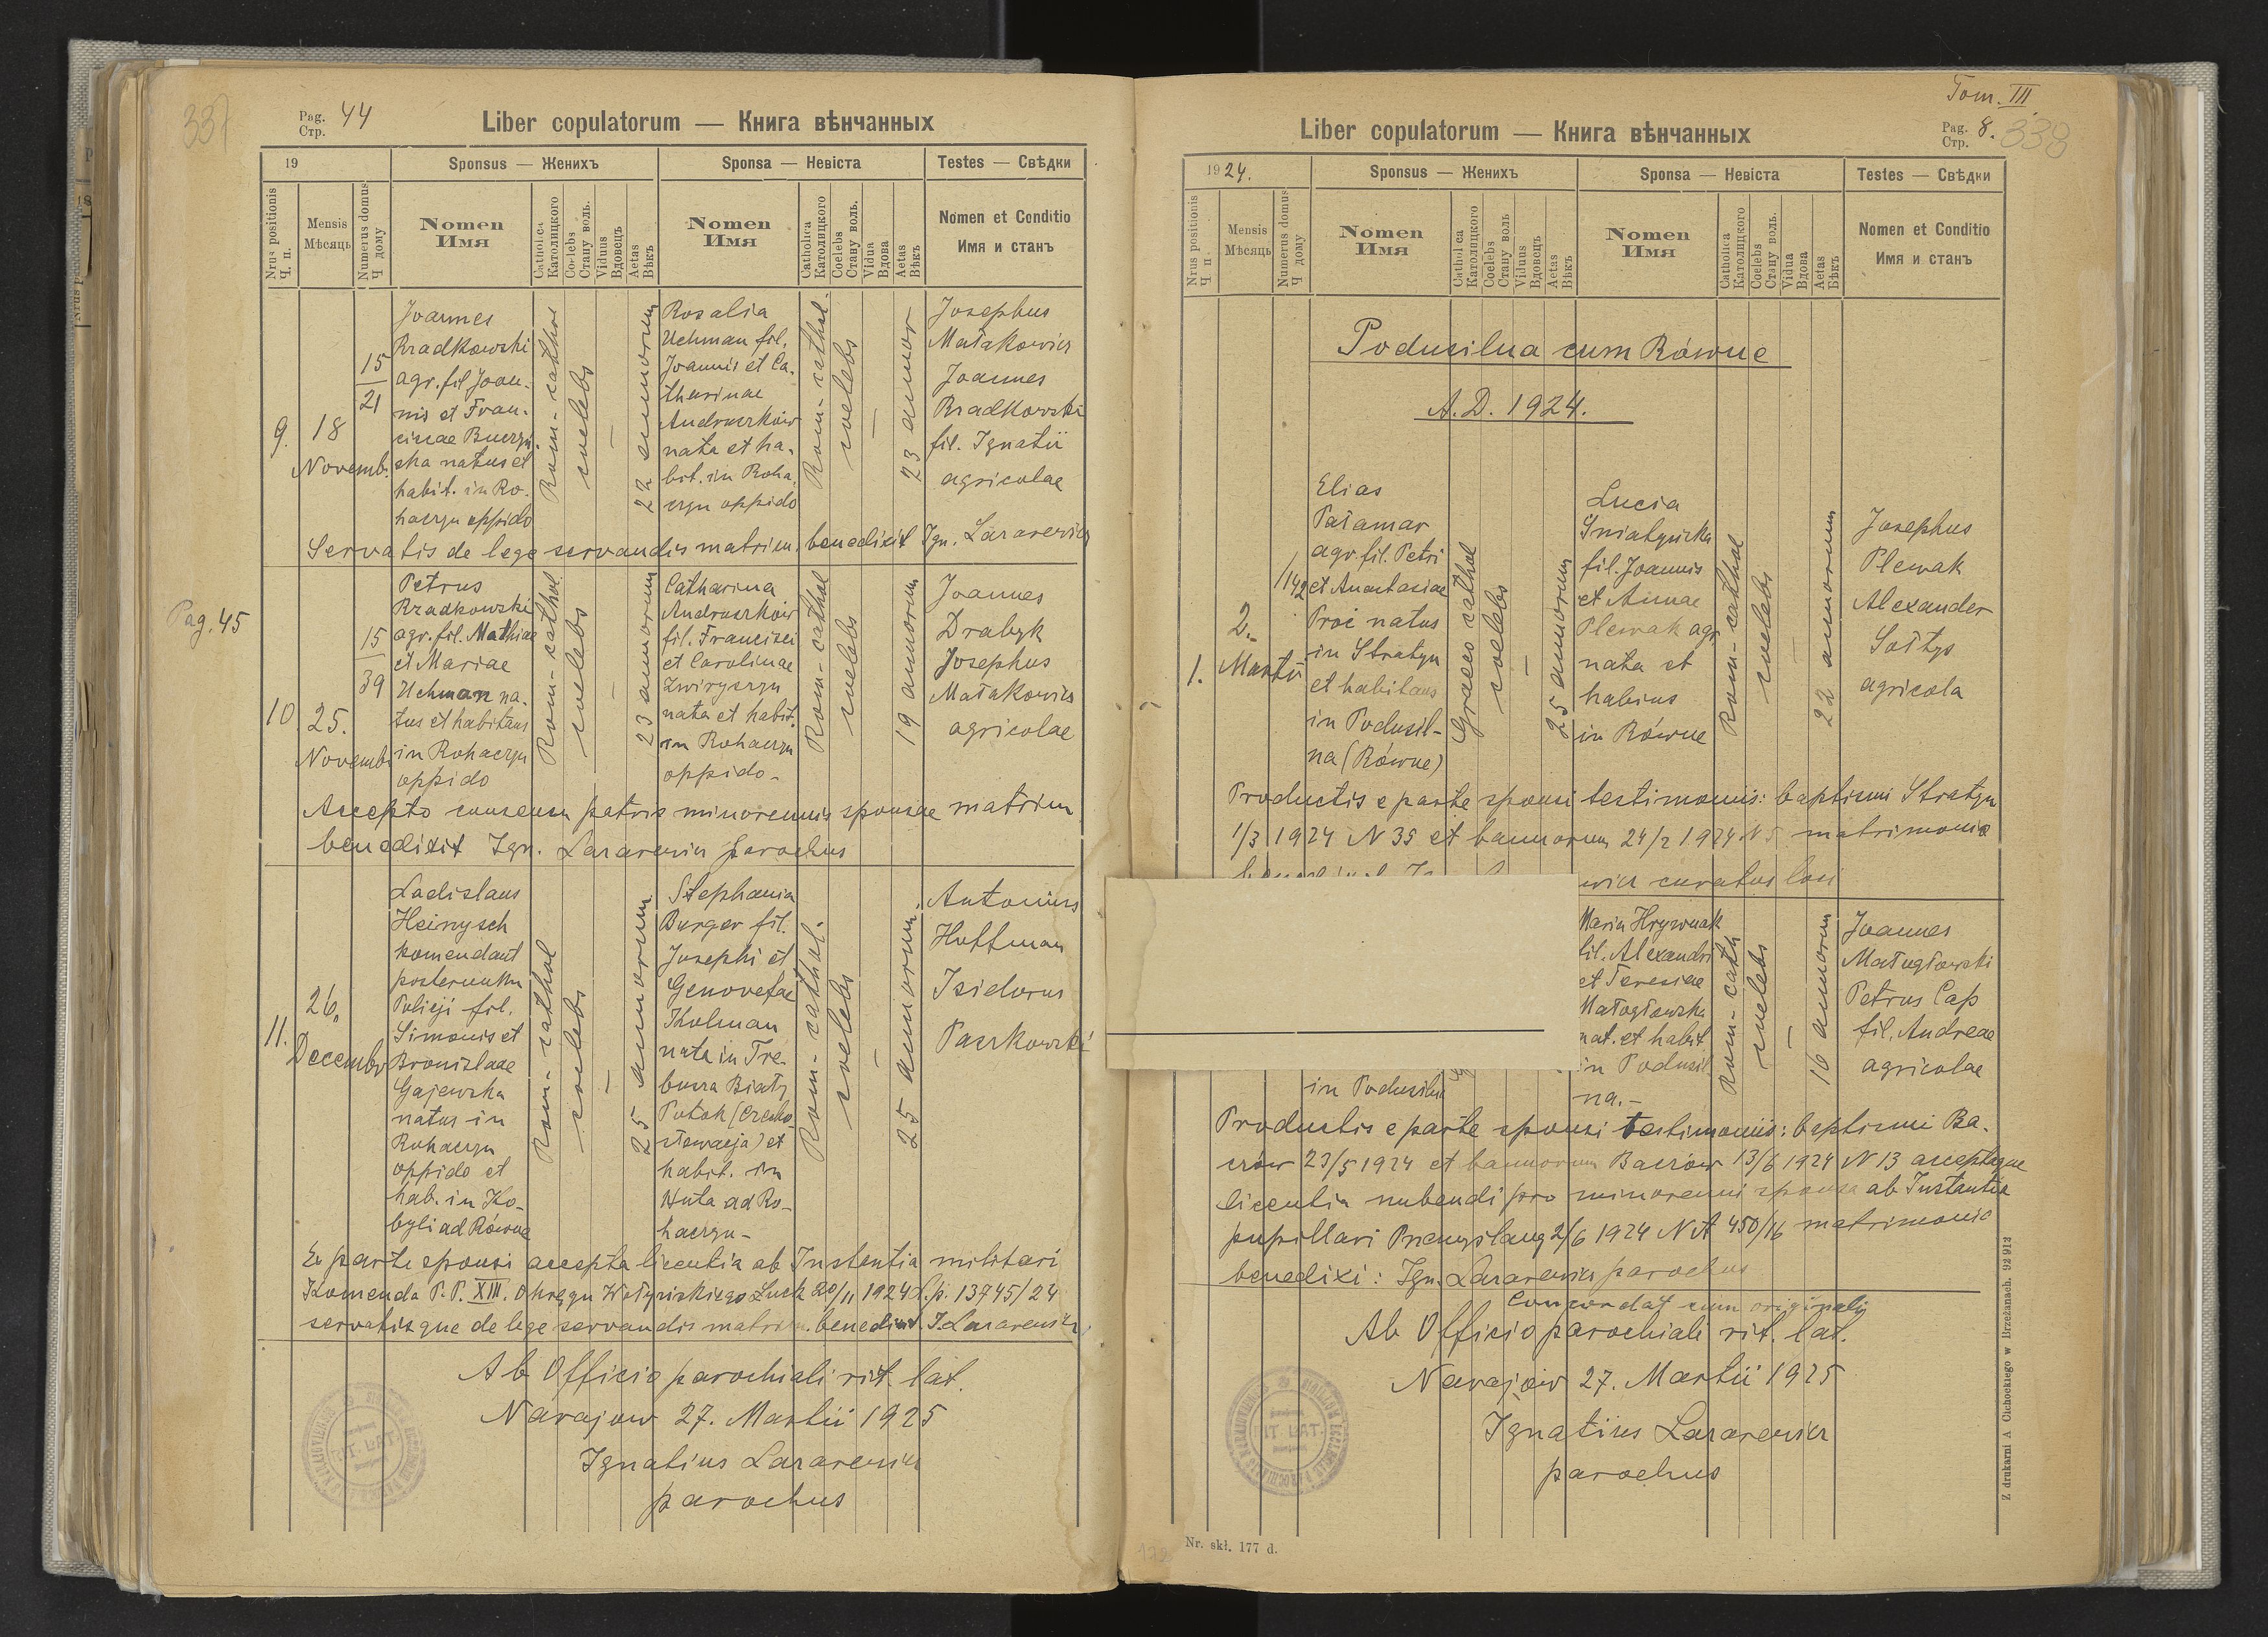 337
Pag. 44
Стр.
Liber copulatorum — Книга вѣнчанных
19
Sponsus — Женихъ
Sponsa — Невіста
Testes — Свѣдки
Nrus positionis
Ч. п.
Mensis
Мѣсяць
Numerus domus
Ч дому
Nomen
Имя
Catholica
Католицкого
Coelebs
Стану воль.
Vidus
Вдовецъ
Aetas
Вѣкъ
Nomen
Имя
Catholica
Католицкого
Coelebs
Стану воль.
Vidua
Вдова
Aetas
Вѣкъ
Nomen et Conditio
Имя и станъ
9.
18
Novemb.
15
21
Joannes
Rradkowski
agr. fil Joan-
nis et Fran-
ciscae
natus et
habit. in Ro-
haczyn oppido
Rom-cathol
coelebs
—
22 annorum
Rosalia
Uchman fil.
Joannis et Ca-
tharinae
Andruszków
nata et ha-
bit. in Roha-
czyn oppido
Rom-cathol.
coelebs
—
23 annor
Josephus
Małakowicz
Joannes
Rradkowski
fil. Ignatii
agricolae
Servatis de lege servandis matrim. benedixit Ign. Lazarewicz
Pag. 45
10
25.
Novemb
15
39
Petrus
Rzadkowski
agr. fil. Mathiae
et Mariae
Uchman na-
tus et habitans
in Rohaczyn
oppido
Rom-cathol.
coelebs
—
23 annorum
Catharina
Andruszków
fil. Francisci
et Carolinae
Zwiryczyn
nata et habit.
in Rohaczyn
oppido-
Rom-cathol
coelebs
—
19 annorum
Joannes
Drabyk
Josephus
Małakowicz
agricolae
Accepto consensu patris minorennis sponsae matrim
benedixit Ign. Lazarewicz parochus
11.
26.
Decembr
Ladislaus
Heinysch
komendant
posterunku
Policji fil.
Simonis et
Bronislaae
Gajewska
natus in
Rohaczyn
oppido et
hab. in Ko-
byli ad Równe
Rom-cathol
coelebs
—
25 annorum
Stephania
Burger fil.
Josephi et
Genovefae
Kolman
nata in Tre-
bursa Biały
Potok (Czecho-
słowacja) et
habit. in
Huta ad Ro-
haczyn-
Rom-cathol.
coelebs
—
25 annorum.
Antonius
Hoffman
Isidorus
Paszkowski
Ex parte sponsi accepta licentia ab Instantia militari
Komenda P.P. XIII. Okręgu Wołyńskiego Luck 20/11 1924 L.p. 13745/24
servatisque de lege servandis matrim. benedixit. I. Lazarewicz
Ab Officio parochiali rit. lat.
Narajow 27. Martii 1925
Ignatius Lazarewicz
parochus
RIT. LAT.
Tom. III
Pag. 8.
Стр.
338
Liber copulatorum — Книга вѣнчанных
1924.
Sponsus — Женихъ
Sponsa — Невіста
Testes — Свѣдки
Nrus positionis
Ч п
Mensis
Мѣсяць
Numerus domus
Ч дому
Nomen
Имя
Catholica
Католицкого
Coelebs
Стану воль
Viduus
Вдовецъ
Aetas
Вѣкъ
Nomen
Имя
Catholica
Католицкого
Coelebs
Стану воль.
Vidua
Вдова
Aetas
Вѣкъ
Nomen et Conditio
Имя и станъ
Podusilna cum Równe
A.D. 1924.
1.
2.
Martii
142
Elias
Pałamar
agr. fil. Petri
et Anastasiae
Proć natus
in Stratyn
et habitans
in Podusil-
na (Równe)
Graeco cathol
coelebs
—
25 annorum
Lucia
Śniatyńska
fil. Joannis
et Annae
Plewak agr.
nata et
habius
in Równe
Rom-cathol
coelebs
—
22 annorum
Josephus
Plewak
Alexander
Sołtys
agricola
Productis e parte sponsi testimoniis: baptismi Stratyn
1/3 1924 N 35 et bannorum 24/2 1924 N 5 matrimonio
wicz curatus loci
in Podusilna
Maria Hrywnak
fil. Alexandri
et Teresiae
Małogłowska
nat. et habit
in Podusil
na.-
Rom-cath
coelebs
—
16 annorum
Joannes
Małogłowski
Petrus Cap
fil. Andreae
agricolae
Productis e parte sponsi testimoniis: baptismi Ba-
czów 23/5 1924 et bannorum Baczów 13/6 1924 N 13 acceptaque
licentia nubendi pro minorenni sponsa ab Instantia
pupillari Przemyślany 2/6 1924 N A 450/16 matrimonio
benedixi: Ign. Lazarewicz parochus
Concordat cum originali
Ab Officio parochiali rit. lat.
Narajów 27. Martii 1925
Ignatius Lazarewicz
parochus
RIT. LAT.
Nr. skł. 177 d.
Z drukarni A Cichockiego w Brzeżanach. 92912